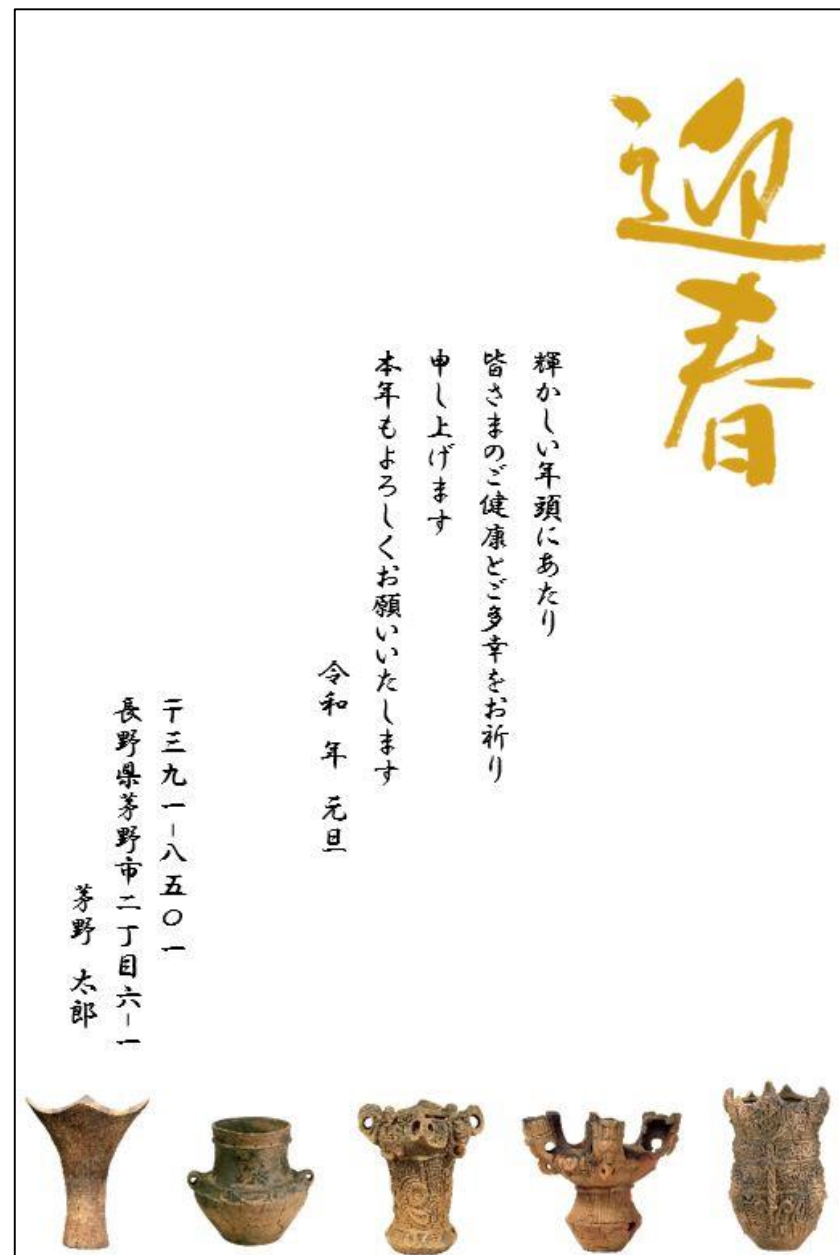 迎春
輝かしい年頭にあたり
皆さまのご健康とご多幸をお祈り
申し上げます
本年もよろしくお願いいたします
令和 年 元旦
〒三九一-八五〇一
長野県茅野市二丁目六-一
茅野 太郎